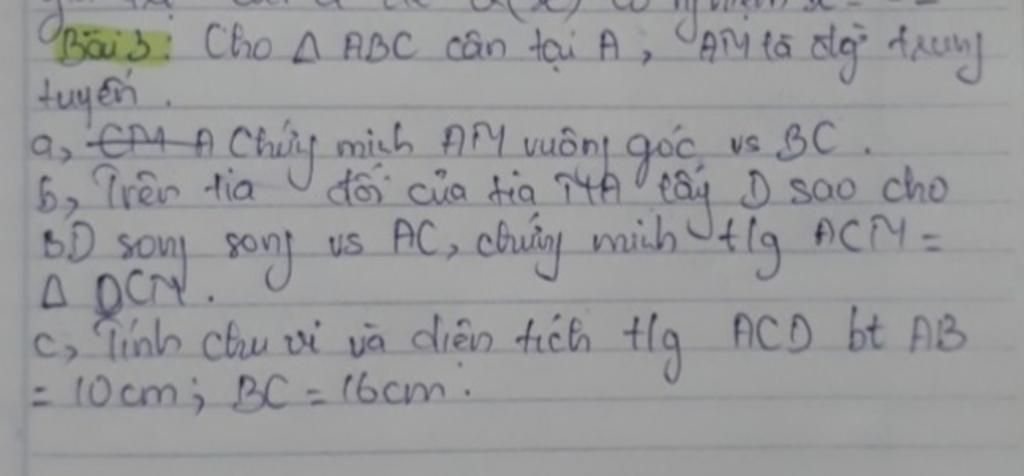 Bài 3: Cho Δ ABC cân tại A, AM là đg` trung
tuyến.
a, CM A Chứng minh AM vuông góc vs BC.
b, Trên tia đối của tia MA lấy D sao cho
BD song song vs AC, chứng minh t/g ACM =
Δ DCM.
c, Tính chu vi và diện tích t/g ACD bt AB
= 10cm; BC = 16cm.